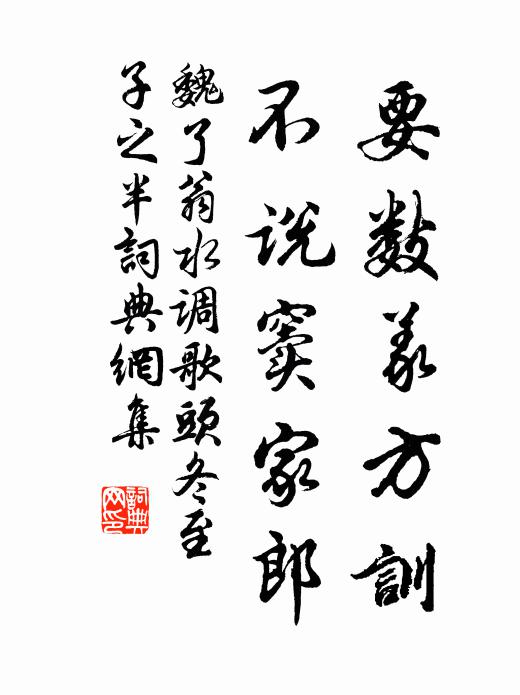 要数义方訓
不说窦家郎
魏了翁水调歌頭冬至
子之半詞典網集
詞典网印